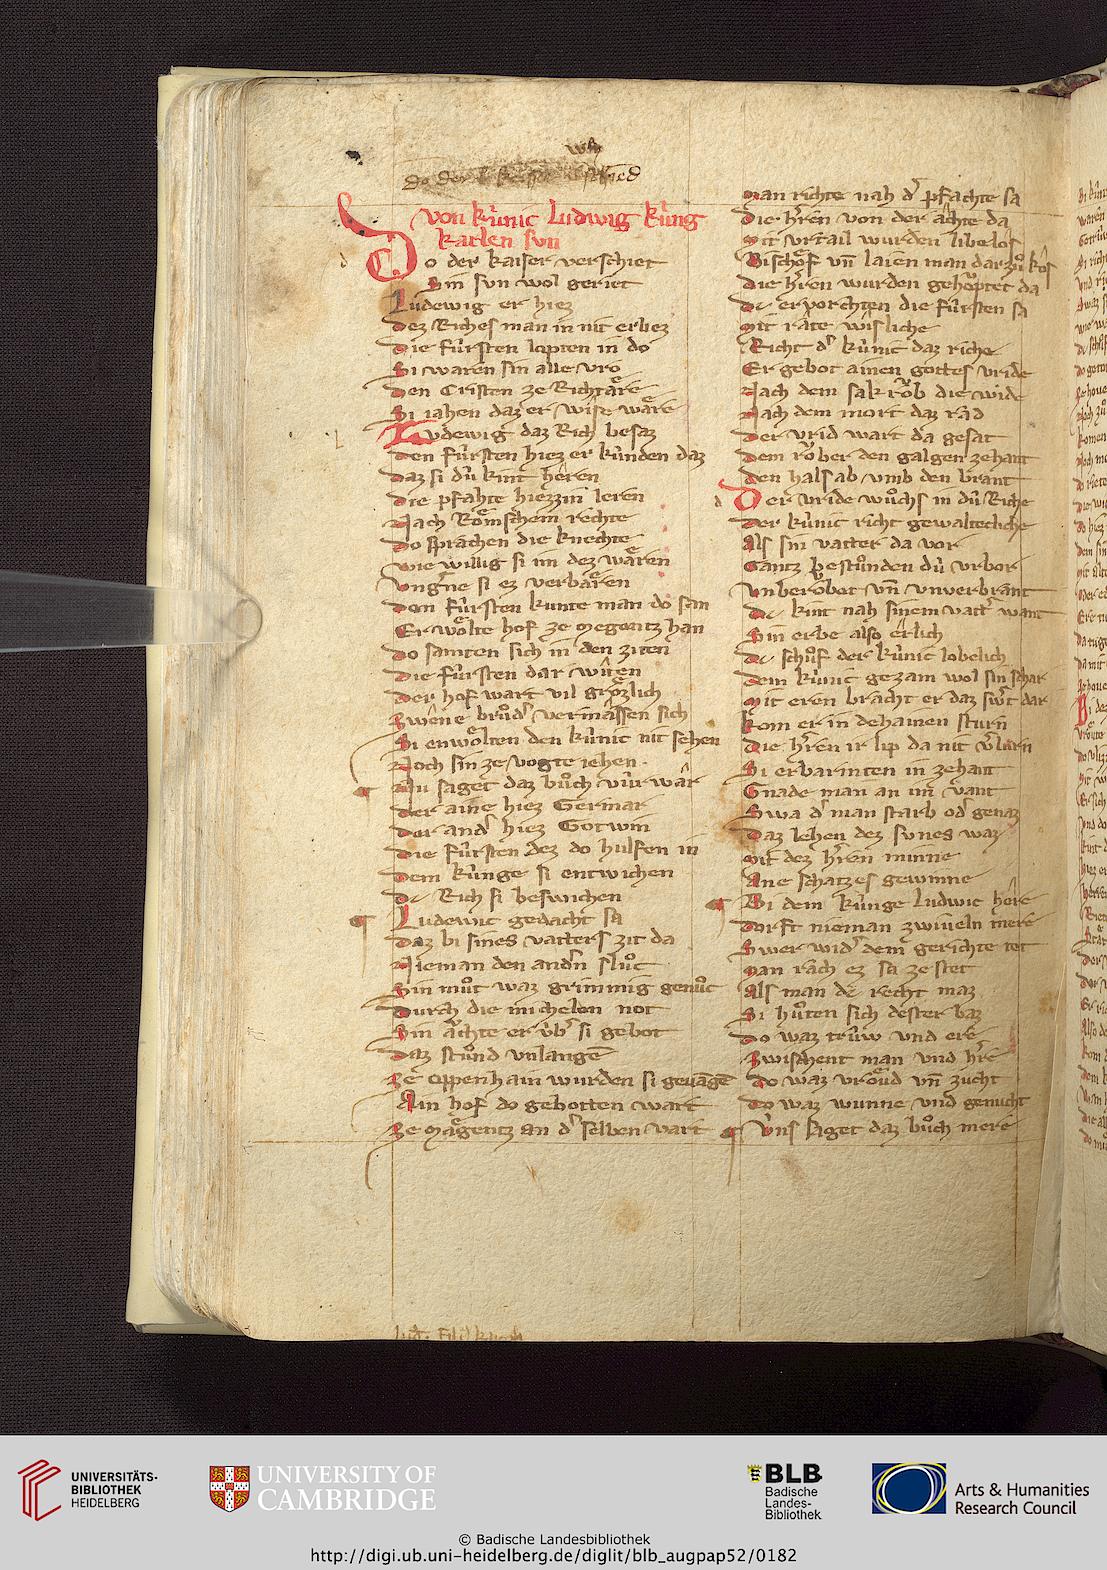 do der kaiser
von kv̂nic Ludwig kv̂ng
karlen svn
Do der kaiser verschiet
Sin svn wol geriet
Ludewig er hiez
Dez Riches man in nit erbez
Die fv̂rsten lopten in do
Si waren sin alle vro
Den Cristen ze Richtäre
Si iahen daz er wise wäre
Ludewig daz Rich besaz
Den fv̂rsten hiez er kv̂nden daz
Daz si dv̂ kint hêren
Die pfahte hiezzin leren
Nach Römschem rechte
Do sprachen die knechte
Wie willig si im dez wären
Vngˀne si ez verbären
Den fv̂rsten kunte man do san
Er wolte hof ze Megentz han
Do samten sich in den ziten
Die fv̂rsten dar wîten
Der hof wart vil grözlich
Zwêne brůdˀ vermässen sich
Si enwolten den kv̂nic nit sehen
Noch sin ze vogte iehen
Nu saget daz bůch vv̂r wâr
Der aine hiez Germar
Der andˀ hiez Gotwin
Die fv̂rsten dez do hulfen in
Dem kv̂nge si entwichen
Dc Rich si beswichen
Ludewic gedacht sa
Daz bi sines vatters zit da
Nieman den andˀn slůc
Sin můt waz grimmig genůc
Durch die michelen not
Sin ächte er v̂bˀ si gebot
Daz stůnd vnlange
Ze Oppenhain wurden si gevāgē
Ain hof do gebotten wart
Ze Mägentz an dˀ selben vart
Man richte nah dˀ pfachte sa
Die hˀren von der ächte da
Mit vrtail wurden
Bischöf vn̄ laien man dar zů kôs
Die hˀren wurden gehöptet da
Dc ervorchten die fv̂rsten sa
Mit râte wisliche
Richt dˀ kv̂nic daz riche
Er gebot ainen gottes vride
Nach dem sakrôb die wide
Nach dem mort daz rad
Der vrid wart da gesat
Dem rôber den galgen zehant
Den hals ab vmb den brant
Der vride wůchs in dv̂ Riche
Der kv̂nic richt gewaltecliche
Als sin vatter da vor
Gantz bestůnden dv̂ vrbor
Vnberöbet vn̄ vnverbrant
Dc kint nah sinem vattˀ want
Sin erbe also êrlich
Dc schůf der kv̂nic lobelich
Dem kv̂nic gezam wol sin schar
Mit eren bracht er daz swˀt dar
Kom er in dehainen sturn
Die hˀren ir lip da nit vˀlurn
Si erbarmten in zehant
Gnade man an im vant
Swa dˀ man starb odˀ genaz
Daz lehen dez svnes waz
Mit dez hˀren minne
Ane schatzes gewinne
Bi dem kv̂nge Ludwic hêre
Dorft nieman zwiueln mere
Swer widˀ dem gerichte tet
Man râch ez sa ze stet
Als man dc recht maz
Si hůten sich dester baz
Do waz trv̂w vnd ere
Zwischent man vnd hˀre
Do waz vröud vn̄ zucht
Do waz wunne vnd genucht
Vns saget daz bůch mere
UNIVERSITÄTS-
BIBLIOTHEK
HEIDELBERG
UNIVERSITY OF
CAMBRIDGE
BLB
Badische
Landes-
Bibliothek
Arts & Humanities
Research Council
© Badische Landesbibliothek
http://digi.ub.uni-heidelberg.de/diglit/blb_augpap52/0182